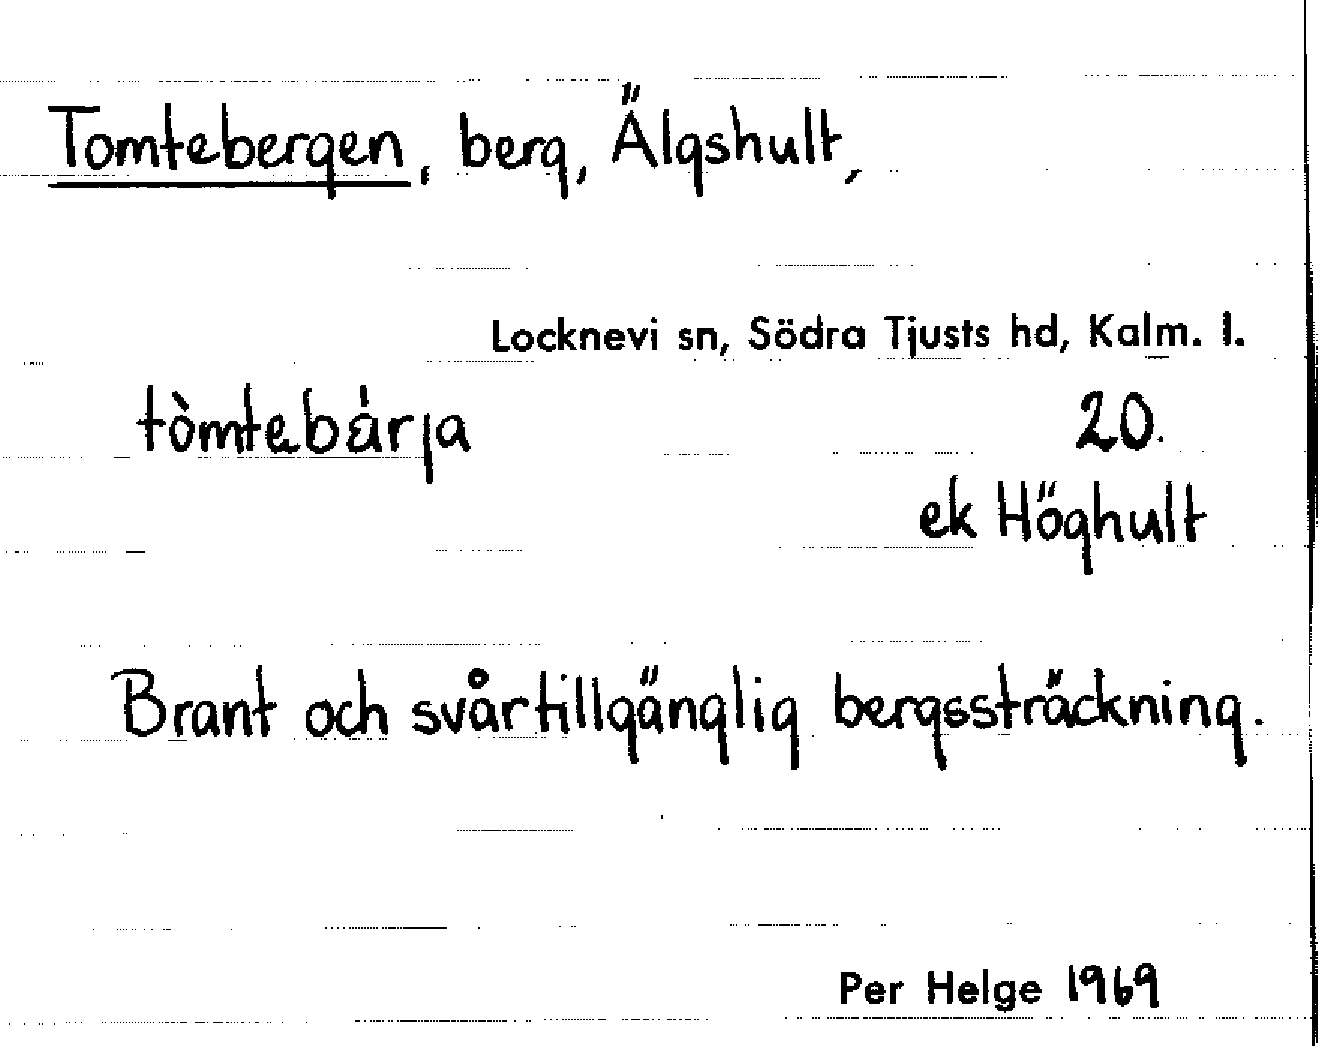 Tomtebergen, berg, Älgshult,
Locknevi sn, Södra Tjusts hd, Kalm. l.
tòmtebárja 20.
ek Höghult
Brant och svårtillgänglig bergssträckning.
Per Helge 1969